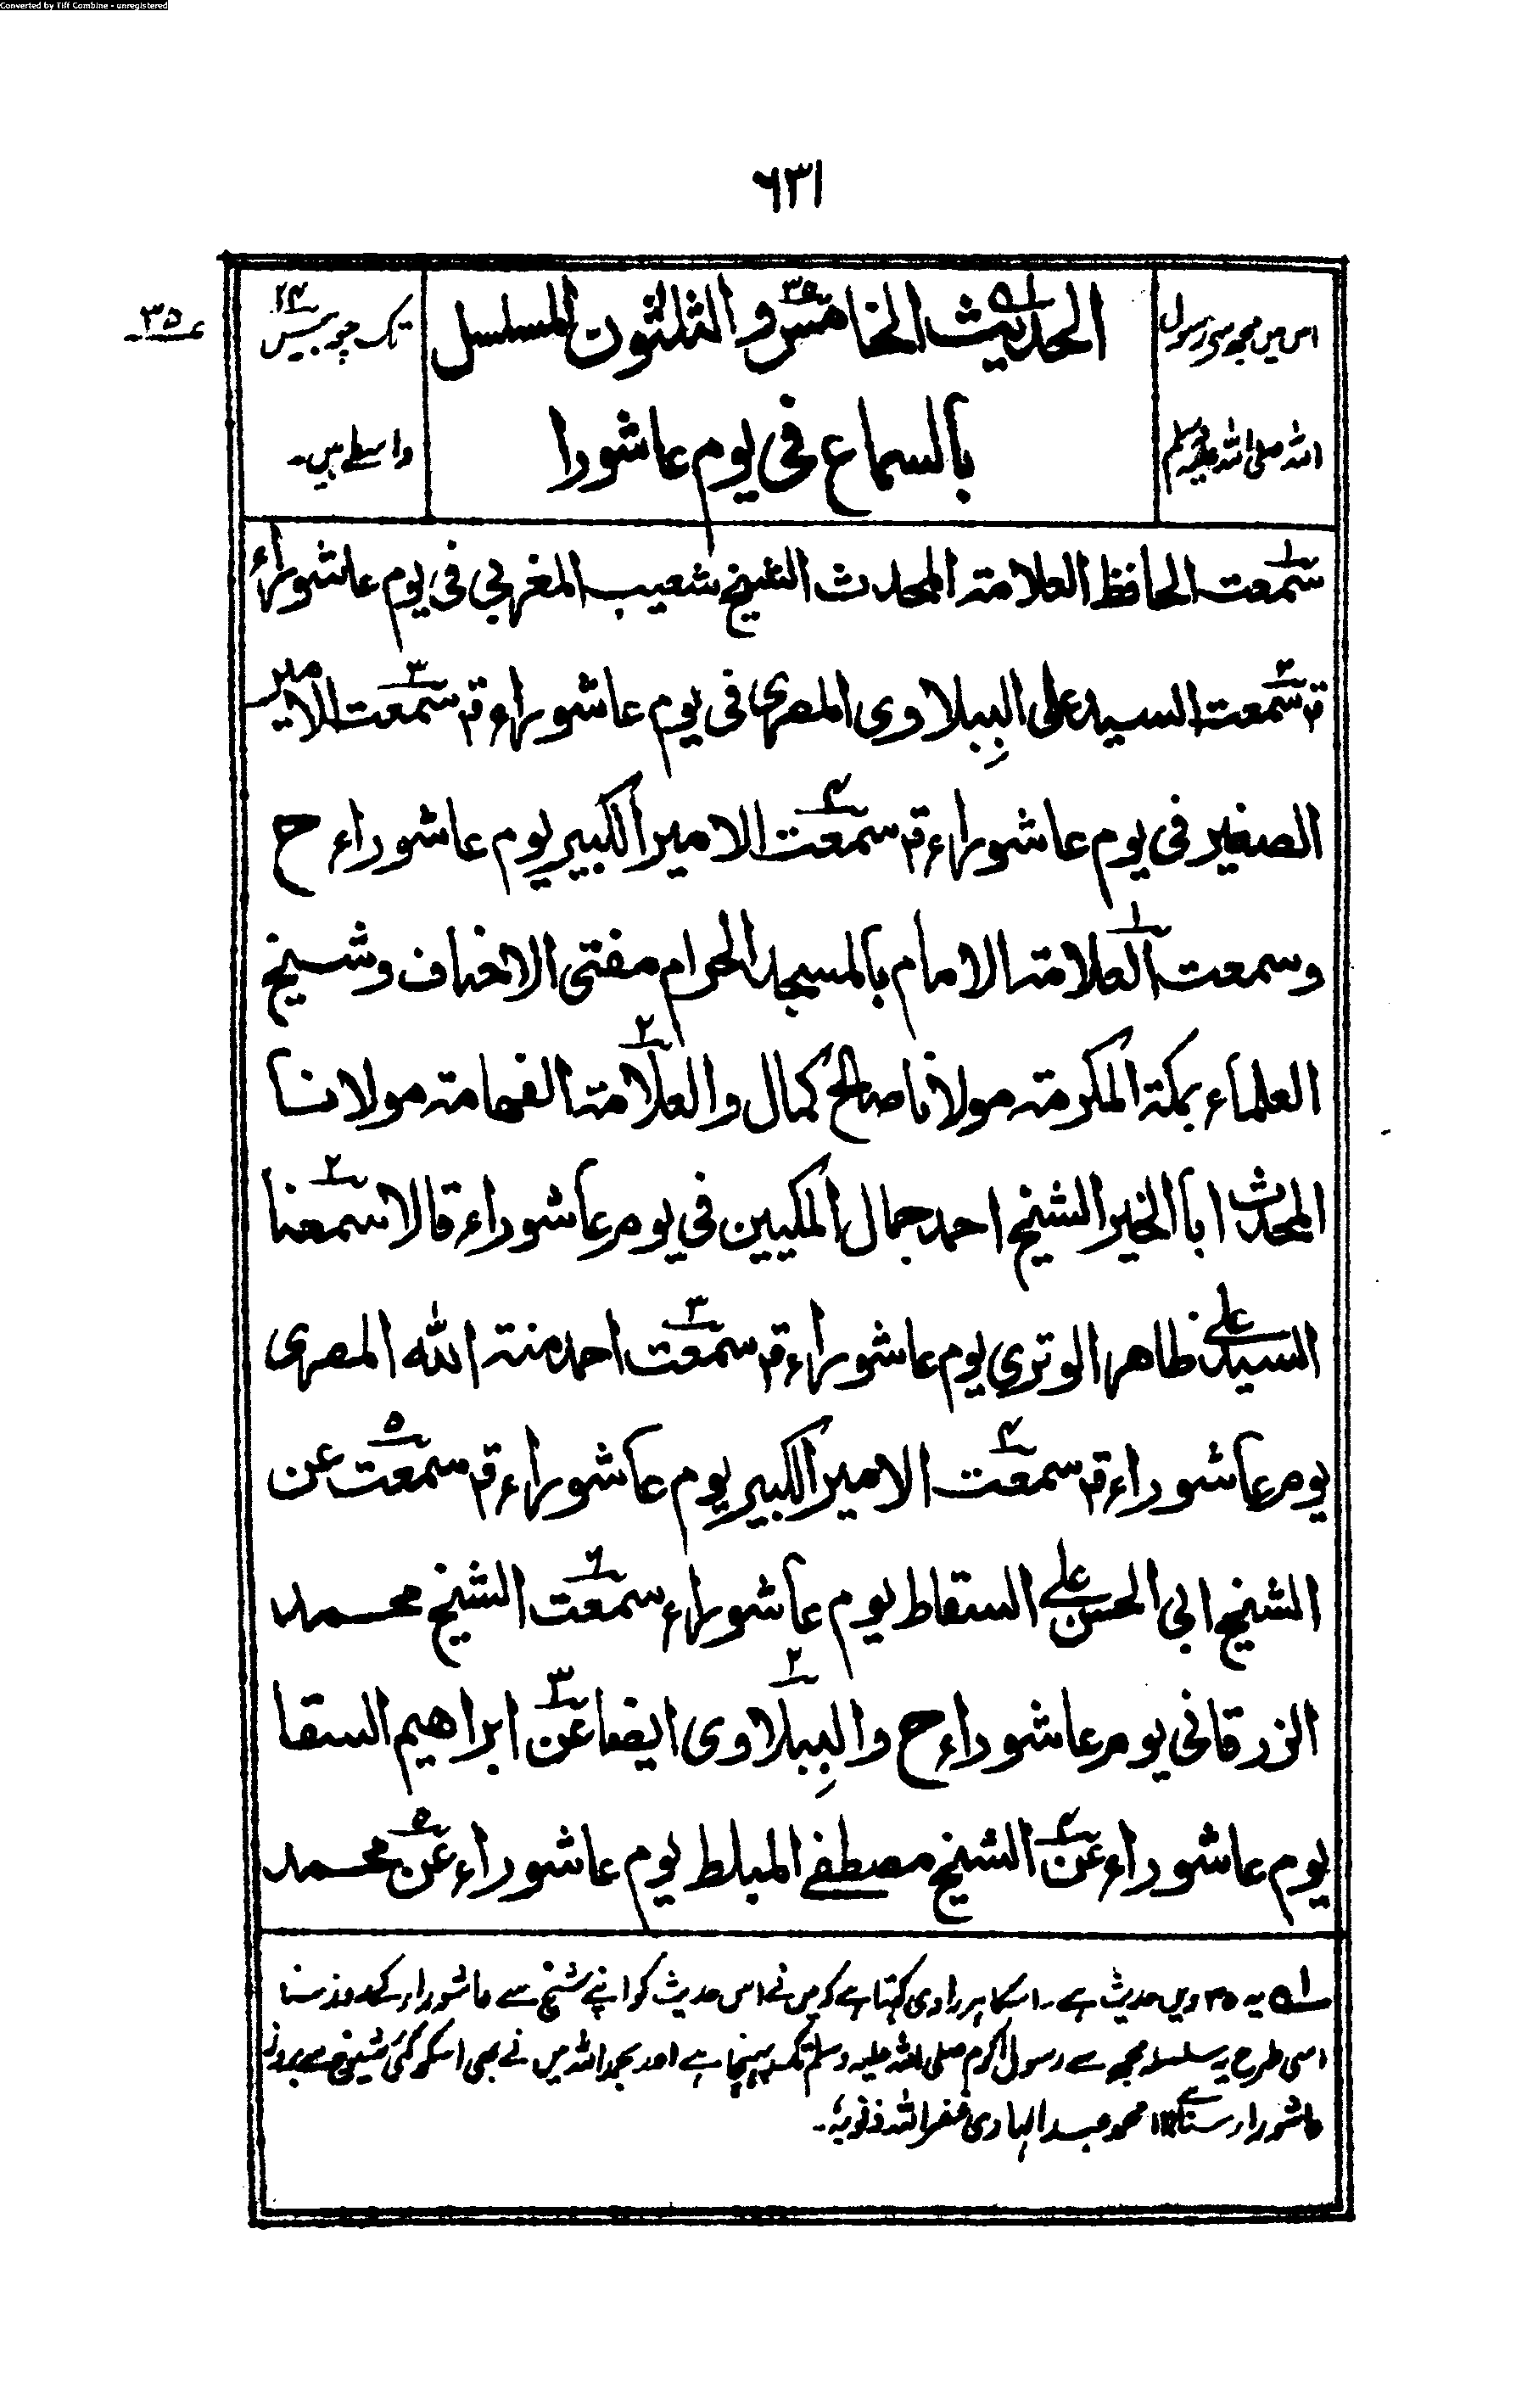 Converted by Tiff Combine - unregistered
٦٣١
اس میں مجھ سے رسول
الحدیث الخامس ۳۵ و الثلثون المسلسل
تک چوبیس ۲۴
۳۵
اللہ صلی اللہ علیہ وسلم
بالسماع فی یوم عاشورا
واسطے ہیں۔
سمعت ۱ الحافظ العلامة المحدث الشیخ شعیب المغربی فی یوم عاشوراء
قہ سمعت ۲ السید علی الببلاوی المصری فی یوم عاشوراء قہ سمعت ۳ الامیر
الصغیر فی یوم عاشوراء قہ سمعت ۴ الامیر الکبیر یوم عاشوراء ح
وسمعت العلامة ۱ الامام بالمسجد الحرام مفتی الاحناف وشیخ
العلماء بمکة المکرمة مولانا صالح کمال والعلامة ۲ الفهامة مولانا
المحدث ابا الخیر الشیخ احمد جمال المکیین فی یوم عاشوراء قالا سمعنا ۲
السید علی ظاهر الوتری یوم عاشوراء قہ سمعت ۳ احمد منة الله المصری
یوم عاشوراء قہ سمعت ۴ الامیر الکبیر یوم عاشوراء قہ سمعت ۵ عن
الشیخ ابی الحسن علی السقاط یوم عاشوراء سمعت ۶ الشیخ محمد
الزرقانی یوم عاشوراء ح والببلاوی ۲ ایضا عن ۳ ابراهیم السقا
یوم عاشوراء عن ۴ الشیخ مصطفے المبلط یوم عاشوراء عن ۵ محمد
۱ھ یہ ۳۵ ویں حدیث ہے۔ اسکا ہر راوی کہتا ہے کہ میں نے اس حدیث کو اپنے شیخ سے عاشوراء کے روز سنا
اسی طرح یہ سلسلہ مجھ سے رسول اکرم صلی اللہ علیہ وسلم تک پہنچا ہے اور بحمد اللہ میں نے بھی اسکو کئی شیوخ سے بروز
عاشوراء سنا ہے ۱۲ محمد عبد الہادی غفر اللہ ذنوبہ۔